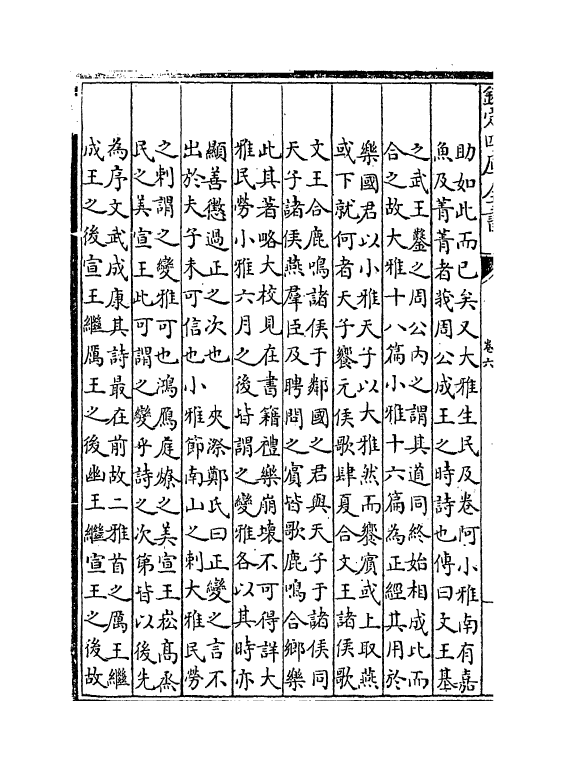 欽定四庫全書
卷六
助如此而已矣又大雅生民及卷阿小雅南有嘉
魚及菁菁者莪周公成王之時詩也傳曰文王基
之武王鑿之周公內之謂其道同終始相成比而
合之故大雅十八篇小雅十六篇為正經其用於
樂國君以小雅天子以大雅然而饗賓或上取燕
或下就何者天子饗元侯歌肆夏合文王諸侯歌
文王合鹿鳴諸侯于鄰國之君與天子于諸侯同
天子諸侯燕羣臣及聘問之賓皆歌鹿鳴合鄉樂
此其著略大校見在書籍禮樂崩壞不可得詳大
雅民勞小雅六月之後皆謂之變雅各以其時亦
顯善懲過正之次也 夾漈鄭氏曰正變之言不
出於夫子未可信也小雅節南山之刺大雅民勞
之刺謂之變雅可也鴻鴈庭燎之美宣王崧高烝
民之美宣王此可謂之變乎詩之次第皆以後先
為序文武成康其詩最在前故二雅首之厲王繼
成王之後宣王繼厲王之後幽王繼宣王之後故